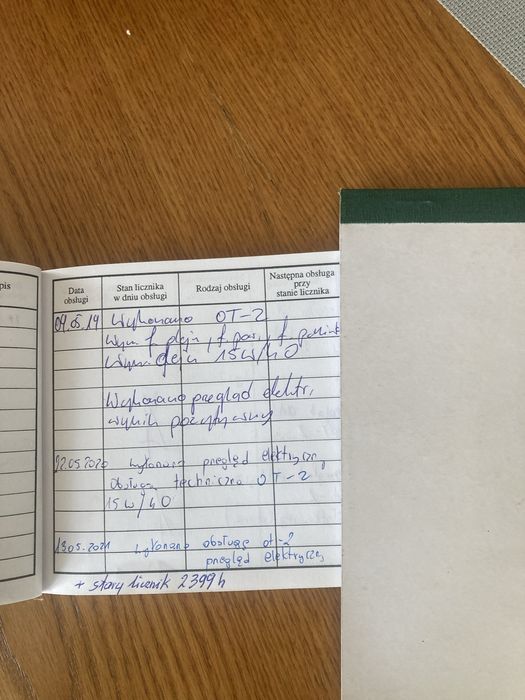 pis
Data obsługi
Stan licznika w dniu obsługi
Rodzaj obsługi
Następna obsługa przy stanie licznika
09.05.19 Wykonano OT-2
Wym f. oleju, f. pow., f. paliwa
Wym oleju 15W/40
Wykonano pregląd elektr,
wynik pozytywny
22.05.2020 wykonano pregląd elektryczny
obsługa techniczna OT-2
15w/40
13.05.2021 wykonano obsługę ot-2
pregląd elektryczny
+ stary licznik 2399 h